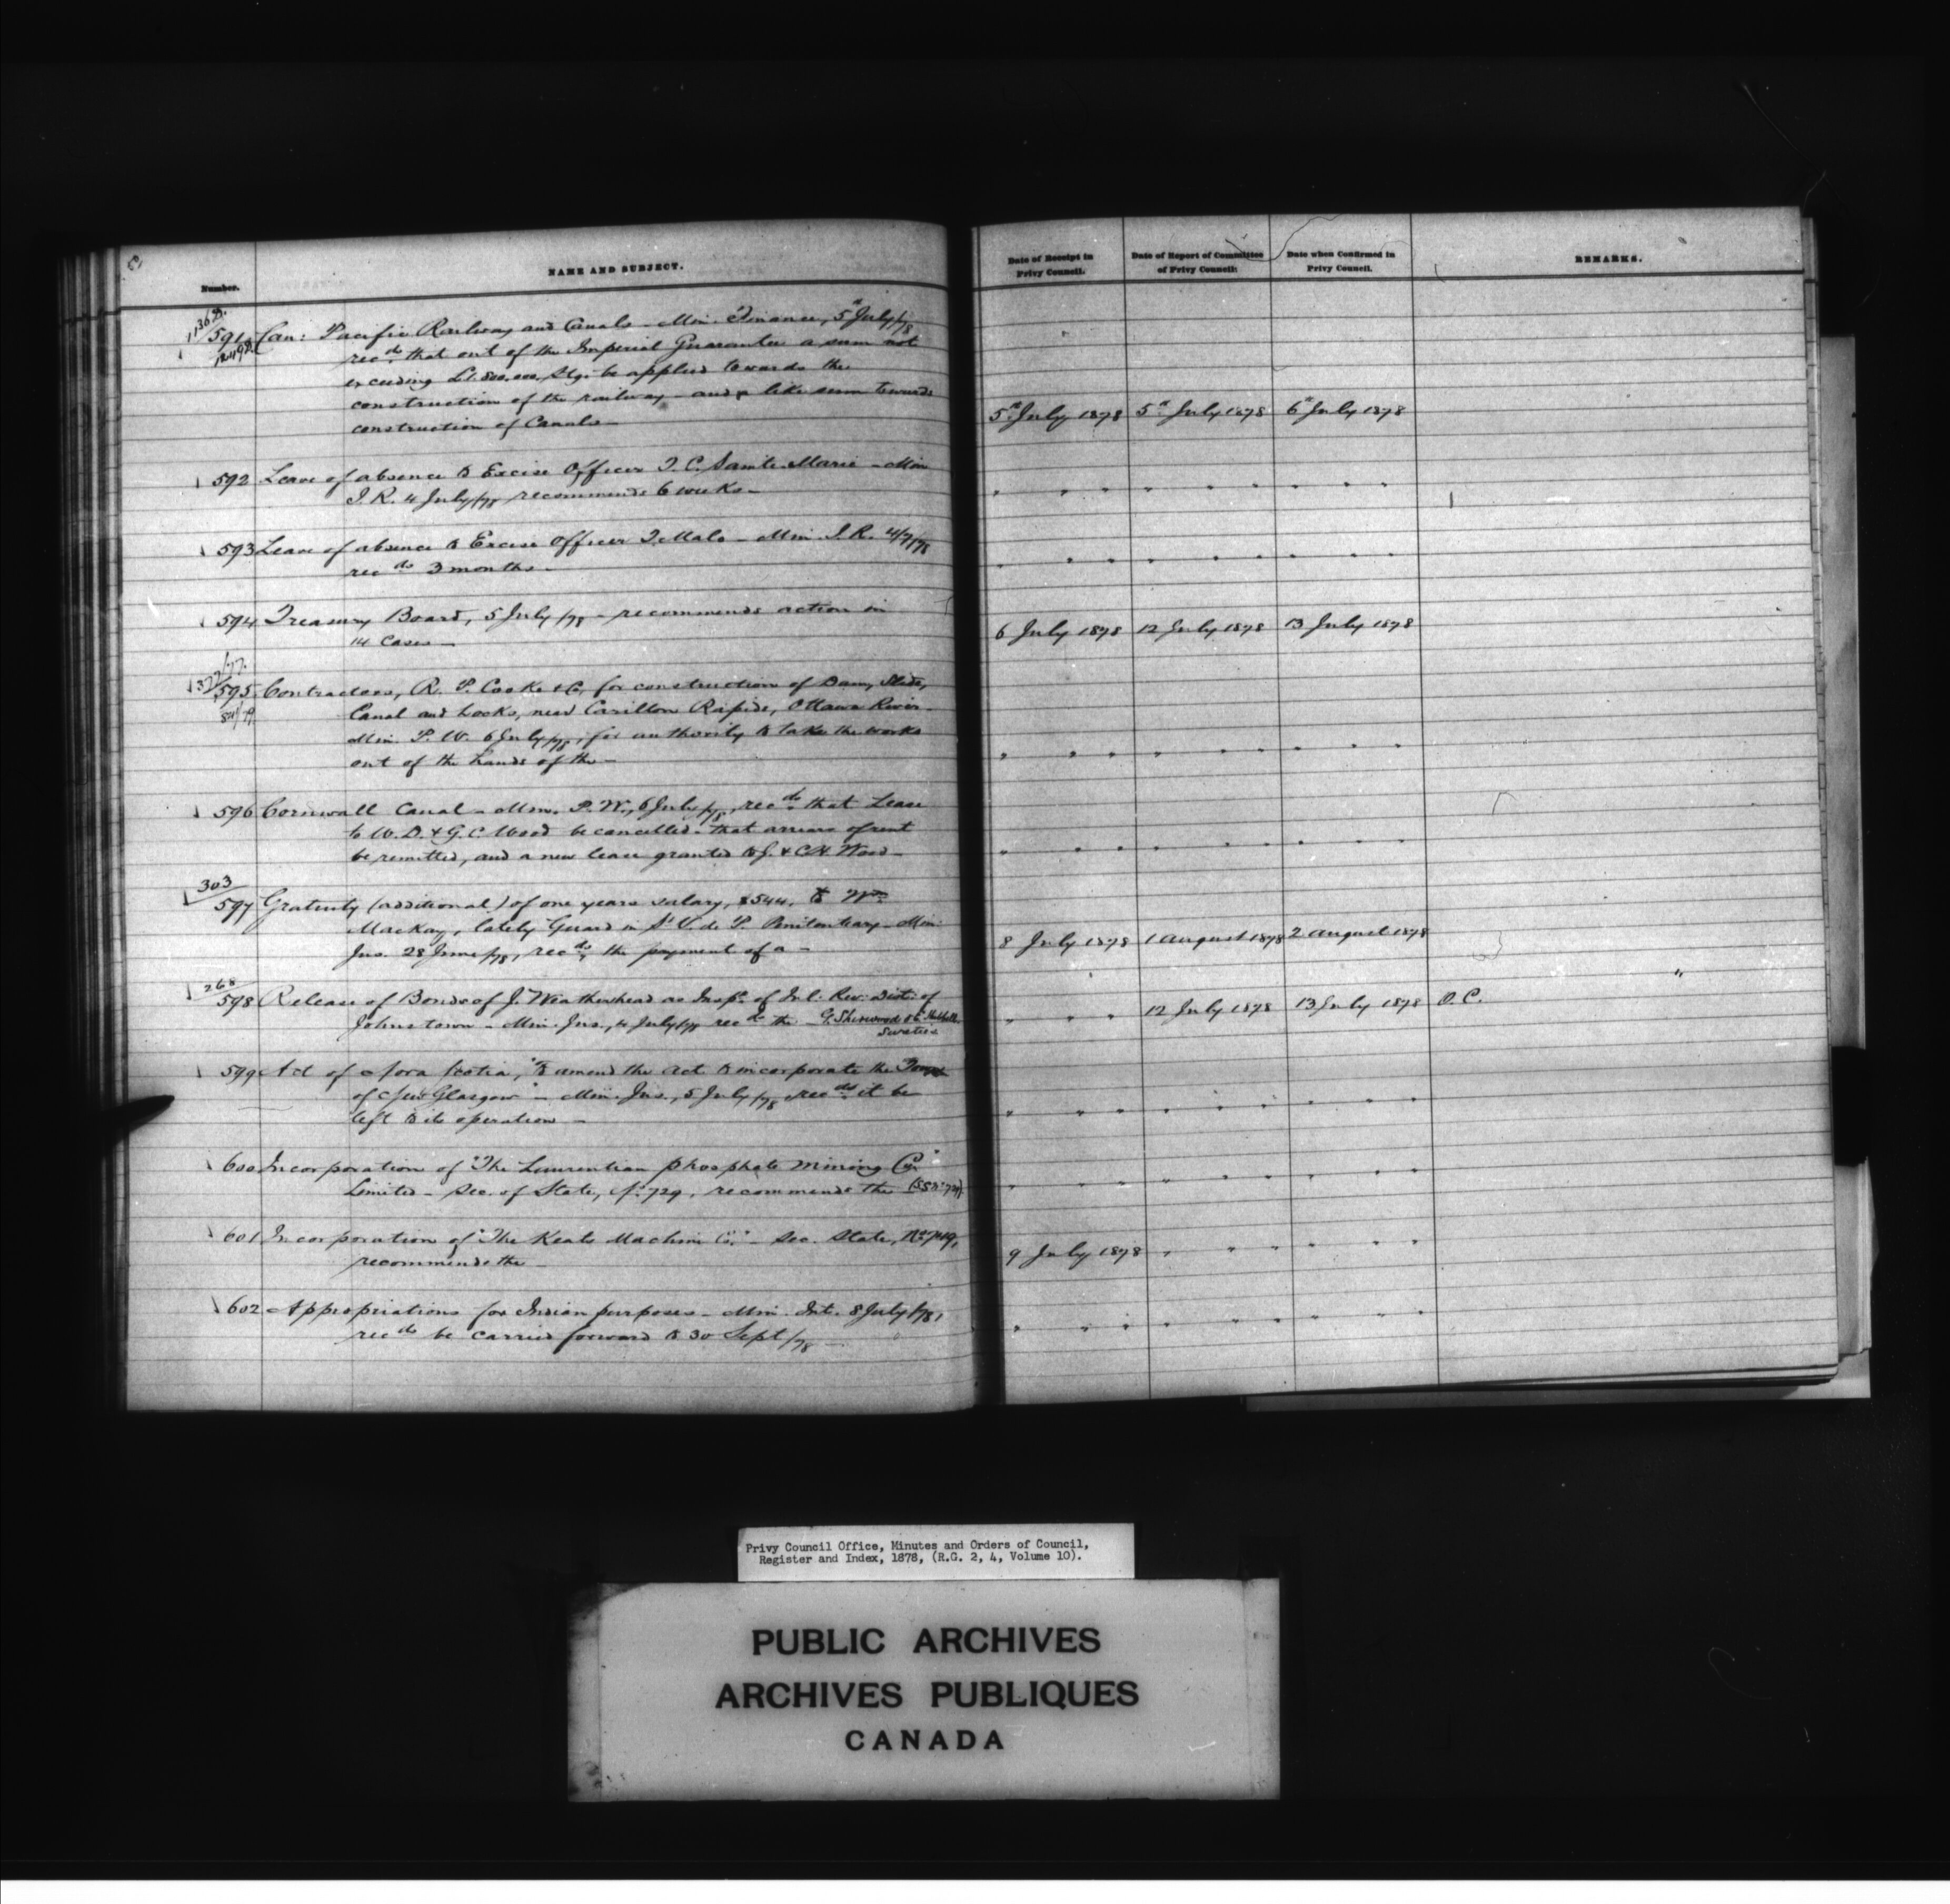 Number.
NAME AND SUBJECT.
Date of Receipt in Privy Council.
Date of Report of Committee of Privy Council.
Date when Confirmed in Privy Council.
REMARKS.
1136D.
591 Can: Pacific Railway and Canals - Min. Finance, 5th July/78
1249D.
recds that out of the Imperial Guarantee a sum not
exceeding £1.800.000. Stg. be applied towards the
construction of the railway - and a like sum towards
construction of Canals -
5th July 1878 5th July 1878 6th July 1878
592 Leave of absence to Excise Officer J. C. Sainte-Marie - Min
I. R. 4 July/78 recommends 6 weeks -
" " " " " " " " "
593 Leave of absence to Excise Officer J. Malo - Min. I. R. 4/7/78
recds 3 months -
" " " " " " " " "
594 Treasury Board, 5 July/78 - recommends action in
14 Cases -
6 July 1878 12 July 1878 13 July 1878
595 Contractors, R. P. Cooke & Co, for construction of Dam, Slide,
Canal and Locks, near Carillon Rapids, Ottawa River
Min. P. W. 6 July/78, for authority to take the works
out of the hands of the -
" " " " " " " " "
596 Cornwall Canal - Min. P. W., 6 July/78, recds that Lease
to W. D. & G. C. Wood be cancelled - that arrears of rent
be remitted, and a new lease granted to J. & C. H. Wood -
" " " " " " " " "
303
597 Gratuity (additional) of one years salary, $544, to Wm
MacKay, lately Guard in St V. de P. Penitentiary - Min
Jus. 28 June/78, recds the payment of a -
8 July 1878 1 August 1878 2 August 1878
268
598 Release of Bonds of J. Weatherhead as Inspr. of Inl. Rev: Dist: of
Johnstown - Min. Jus., 4 July/78 recds the - G. Sherwood &
Sureties
" " " 12 July 1878 13 July 1878 O. C.
599 Act of Nova Scotia, "to amend the Act to incorporate the Town
of New Glasgow" - Min. Jus., 5 July/78 recds it be
left to its operation -
" " " " " " " " "
600 Incorporation of "The Laurentian Phosphate Mining Co."
Limited - Sec. of State, No. 729, recommends the
" " " " " " " " "
601 Incorporation of "The Keats Machine Co." - Sec. State, No. 749,
recommends the -
9 July 1878 " " " " " "
602 Appropriations for Indian purposes - Min. Int. 8 July/78,
recds be carried forward to 30 Sept/78 -
" " " " " " " " "
Privy Council Office, Minutes and Orders of Council,
Register and Index, 1878, (R.G. 2, 4, Volume 10).
PUBLIC ARCHIVES
ARCHIVES PUBLIQUES
CANADA